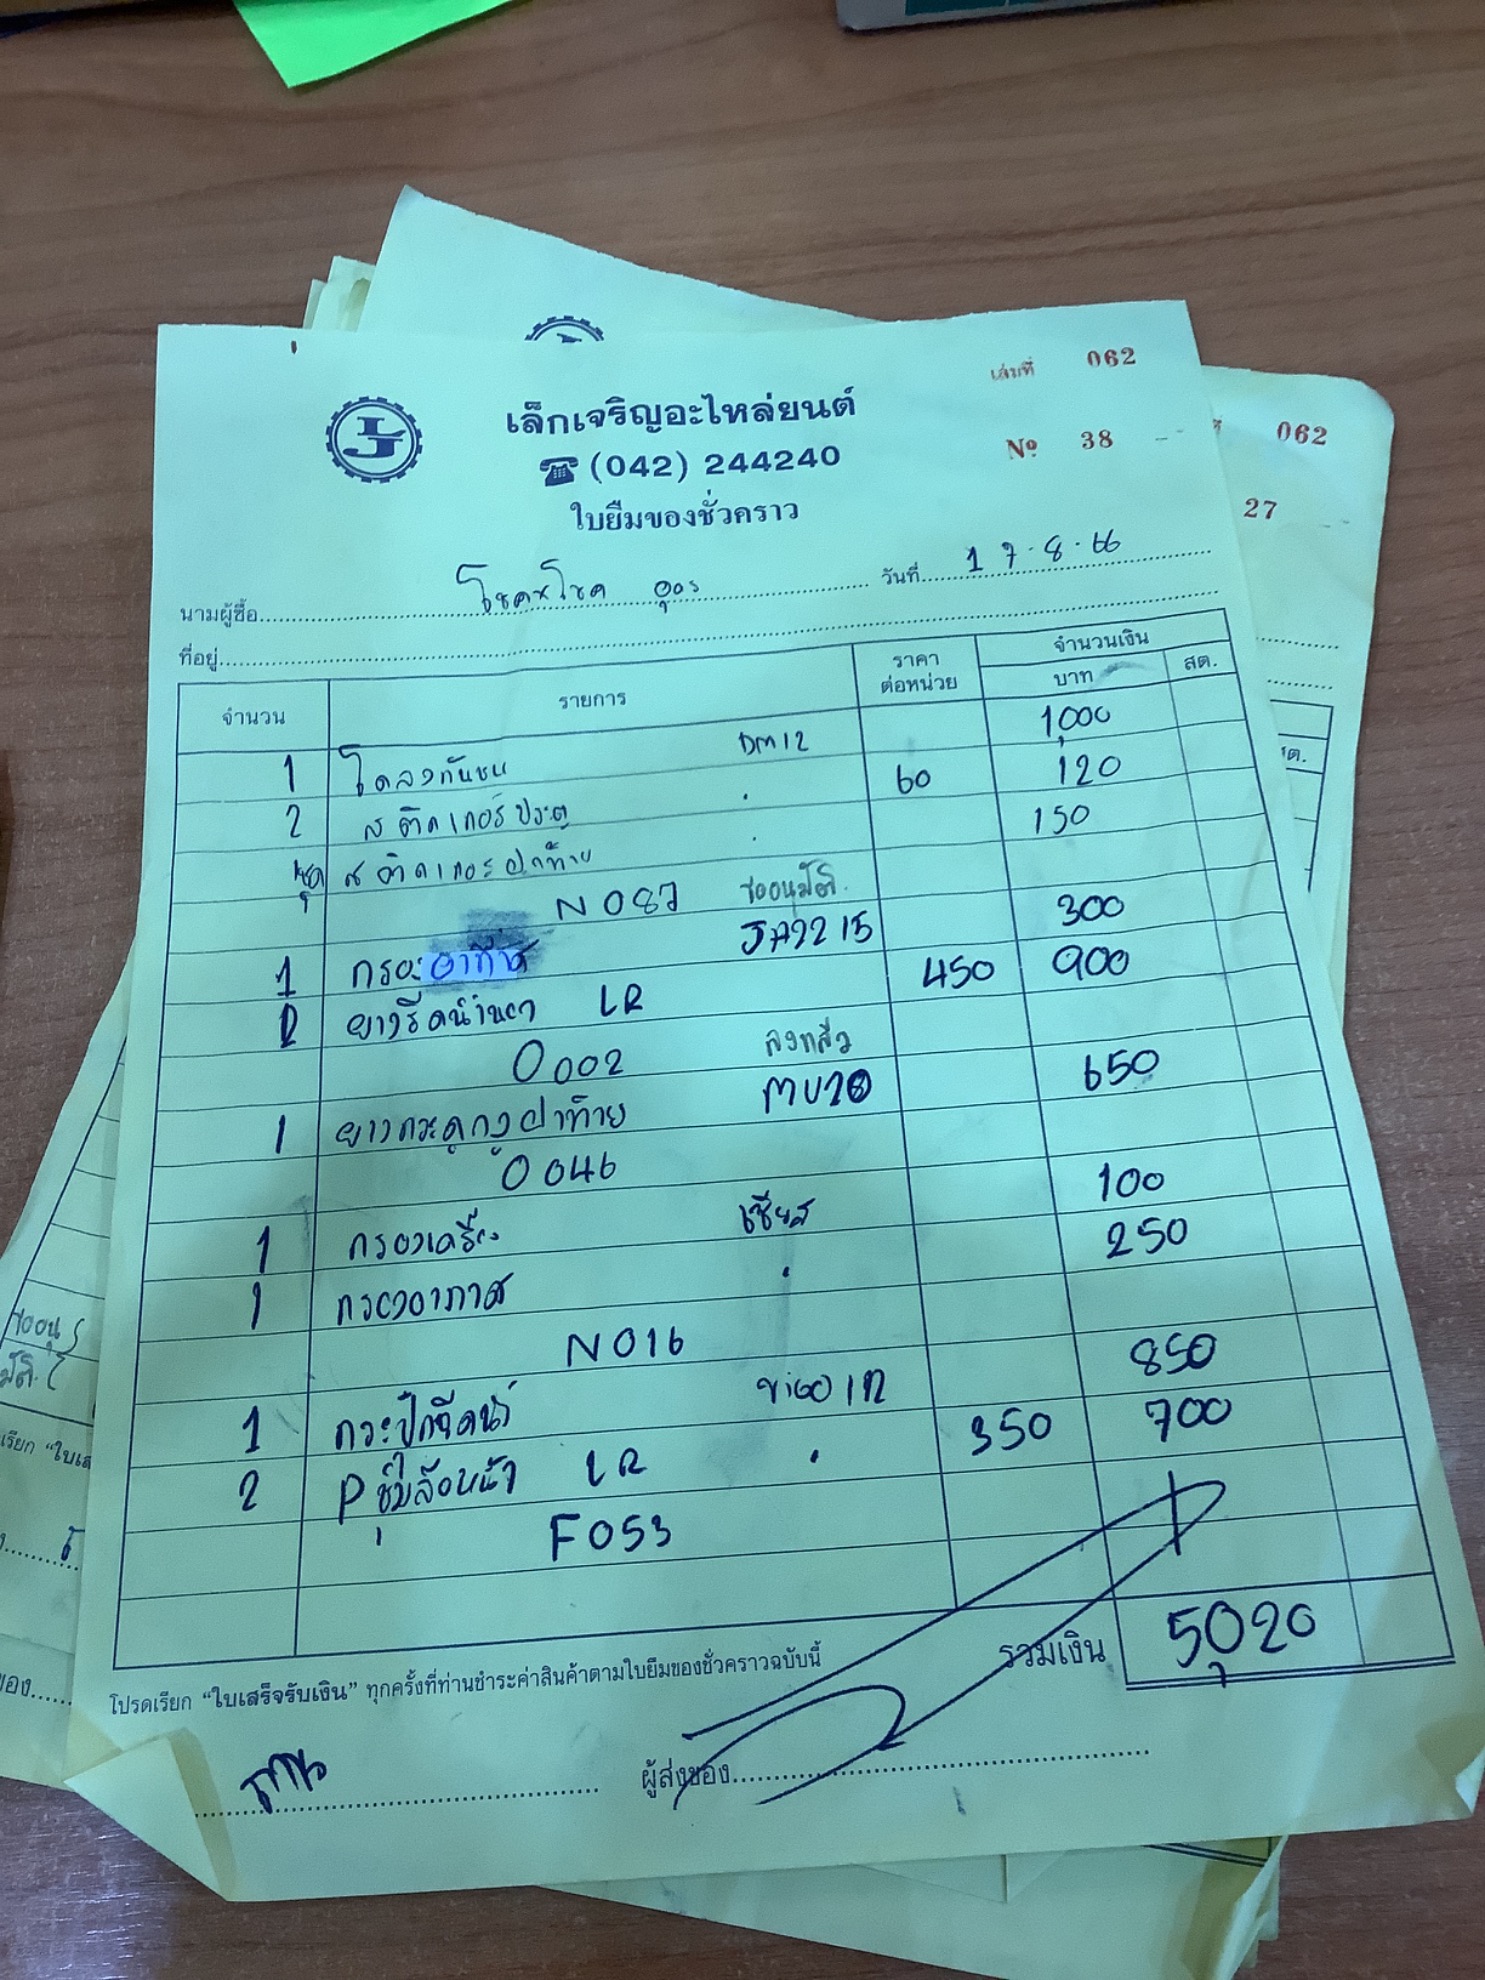 เล่มที่ 062
เล็กเจริญอะไหล่ยนต์
LJ
(042) 244240
Nº 38
062
27
ใบยืมของชั่วคราว
นามผู้ซื้อ โชคชโชค อุดร วันที่ 17-8-66
ที่อยู่
จำนวน รายการ ราคาต่อหน่วย จำนวนเงิน
บาท สต.
สต.
1 โคลงกันชน DM12 1,000
2 สติกเกอร์ประตู " 60 120
ชุด สติกเกอร์ฝาท้าย " 150
N087 ขออนุมัติ
1 กรองอากาศ JA2215 300
2 ยางรีดน้ำ LR 450 900
0002 ลงแล้ว
1 ยางกระดูกงูฝาท้าย MU 650
0046
1 กรองเครื่อง เซียส 100
1 กรองอากาศ " 250
N016
1 กระป๋องฉีดน้ำ VIGO 850
2 P ซุ้มล้อหน้า LR " 350 700
F053
ขออนุ
มัติ
รวมเงิน 5,020
โปรดเรียก "ใบเสร็จรับเงิน" ทุกครั้งที่ท่านชำระค่าสินค้าตามใบยืมของชั่วคราวฉบับนี้
ผู้ส่งของ